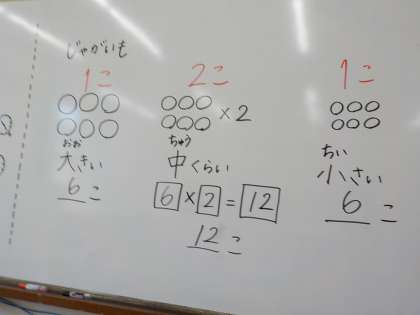 じゃがいも
1こ
2こ
1こ
×2
おお
大きい
6こ
ちゅう
中くらい
6×2=12
12こ
ちい
小さい
6こ